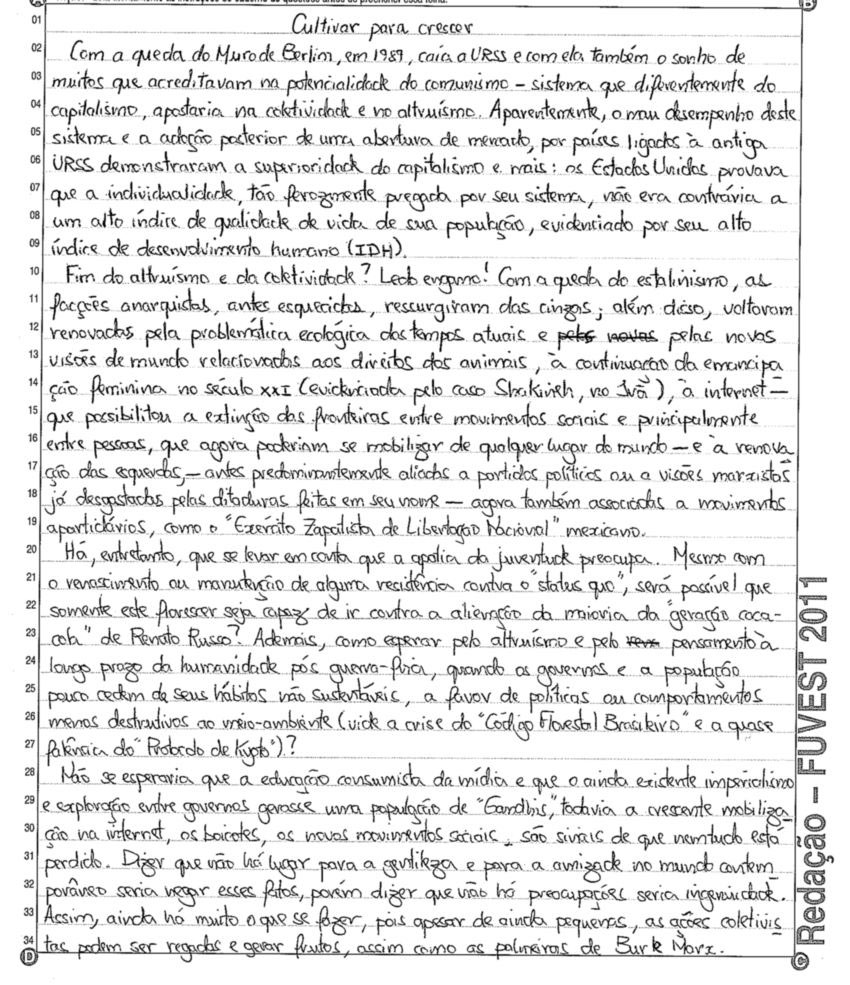 Cultivar para crescer
Com a queda do Muro de Berlim, em 1989, caía a URSS e com ela também o sonho de
muitos que acreditavam na potencialidade do comunismo – sistema que diferentemente do
capitalismo, apostaria na coletividade e no altruísmo. Aparentemente, o mau desempenho deste
sistema e a adoção posterior de uma abertura de mercado, por países ligados à antiga
URSS demonstraram a superioridade do capitalismo e mais: os Estados Unidos provava
que a individualidade, tão ferozmente pregada por seu sistema, não era contrária a
um alto índice de qualidade de vida de sua população, evidenciado por seu alto
índice de desenvolvimento humano (IDH).
Fim do altruísmo e da coletividade? Ledo engano! Com a queda do estalinismo, as
facções anarquistas, antes esquecidas, rescurgiram das cinzas; além disso, voltavam
renovadas pela problemática ecológica dos tempos atuais e pelas novas
visões de mundo relacionados aos direitos dos animais, à continuação da emancipa
ção feminina no século XXI (evidenciada pelo caso Shakineh, no Irã), à internet –
que possibilitou a extinção das fronteiras entre movimentos sociais e principalmente
entre pessoas, que agora poderiam se mobilizar de qualquer lugar do mundo – e à renova
ção das esquerdas, – antes predominantemente aliadas a partidos políticos ou a visões marxistas
já desgastadas pelas ditaduras feitas em seu nome – agora também associadas a movimentos
apartidários, como o "Exército Zapatista de Libertação Nacional" mexicano.
Há, entretanto, que se levar em conta que a apatia da juventude preocupa. Mesmo com
o renascimento ou manutenção de alguma resistência contra o "status quo", será possível que
somente este florescer seja capaz de ir contra a alienação da maioria da "geração coca-
cola" de Renato Russo? Ademais, como esperar pelo altruísmo e pelo pensamento à
longo prazo da humanidade pós guerra-fria, quando os governos e a população
pouco cedem de seus hábitos não sustentáveis, a favor de políticas ou comportamentos
menos destrutivos ao meio-ambiente (vide a crise do "Código Florestal Brasileiro" e a quase
falência do "Protocolo de Kyoto")?
Não se esperaria que a educação consumista da mídia e que o ainda existente imperialismo
e exploração entre governos gerasse uma população de "Gandhis", todavia a crescente mobiliza
ção na internet, os boicotes, os novos movimentos sociais, são sinais de que nem tudo está
perdido. Dizer que não há lugar para a gentileza e para a amizade no mundo contem
porâneo seria negar esses fatos, porém dizer que não há preocupações seria ingenuidade.
Assim, ainda há muito o que se fazer, pois apesar de ainda pequenas, as ações coletivis
tas podem ser regadas e gerar frutos, assim como as palmeiras de Burle Marx.
© Redação – FUVEST 2011